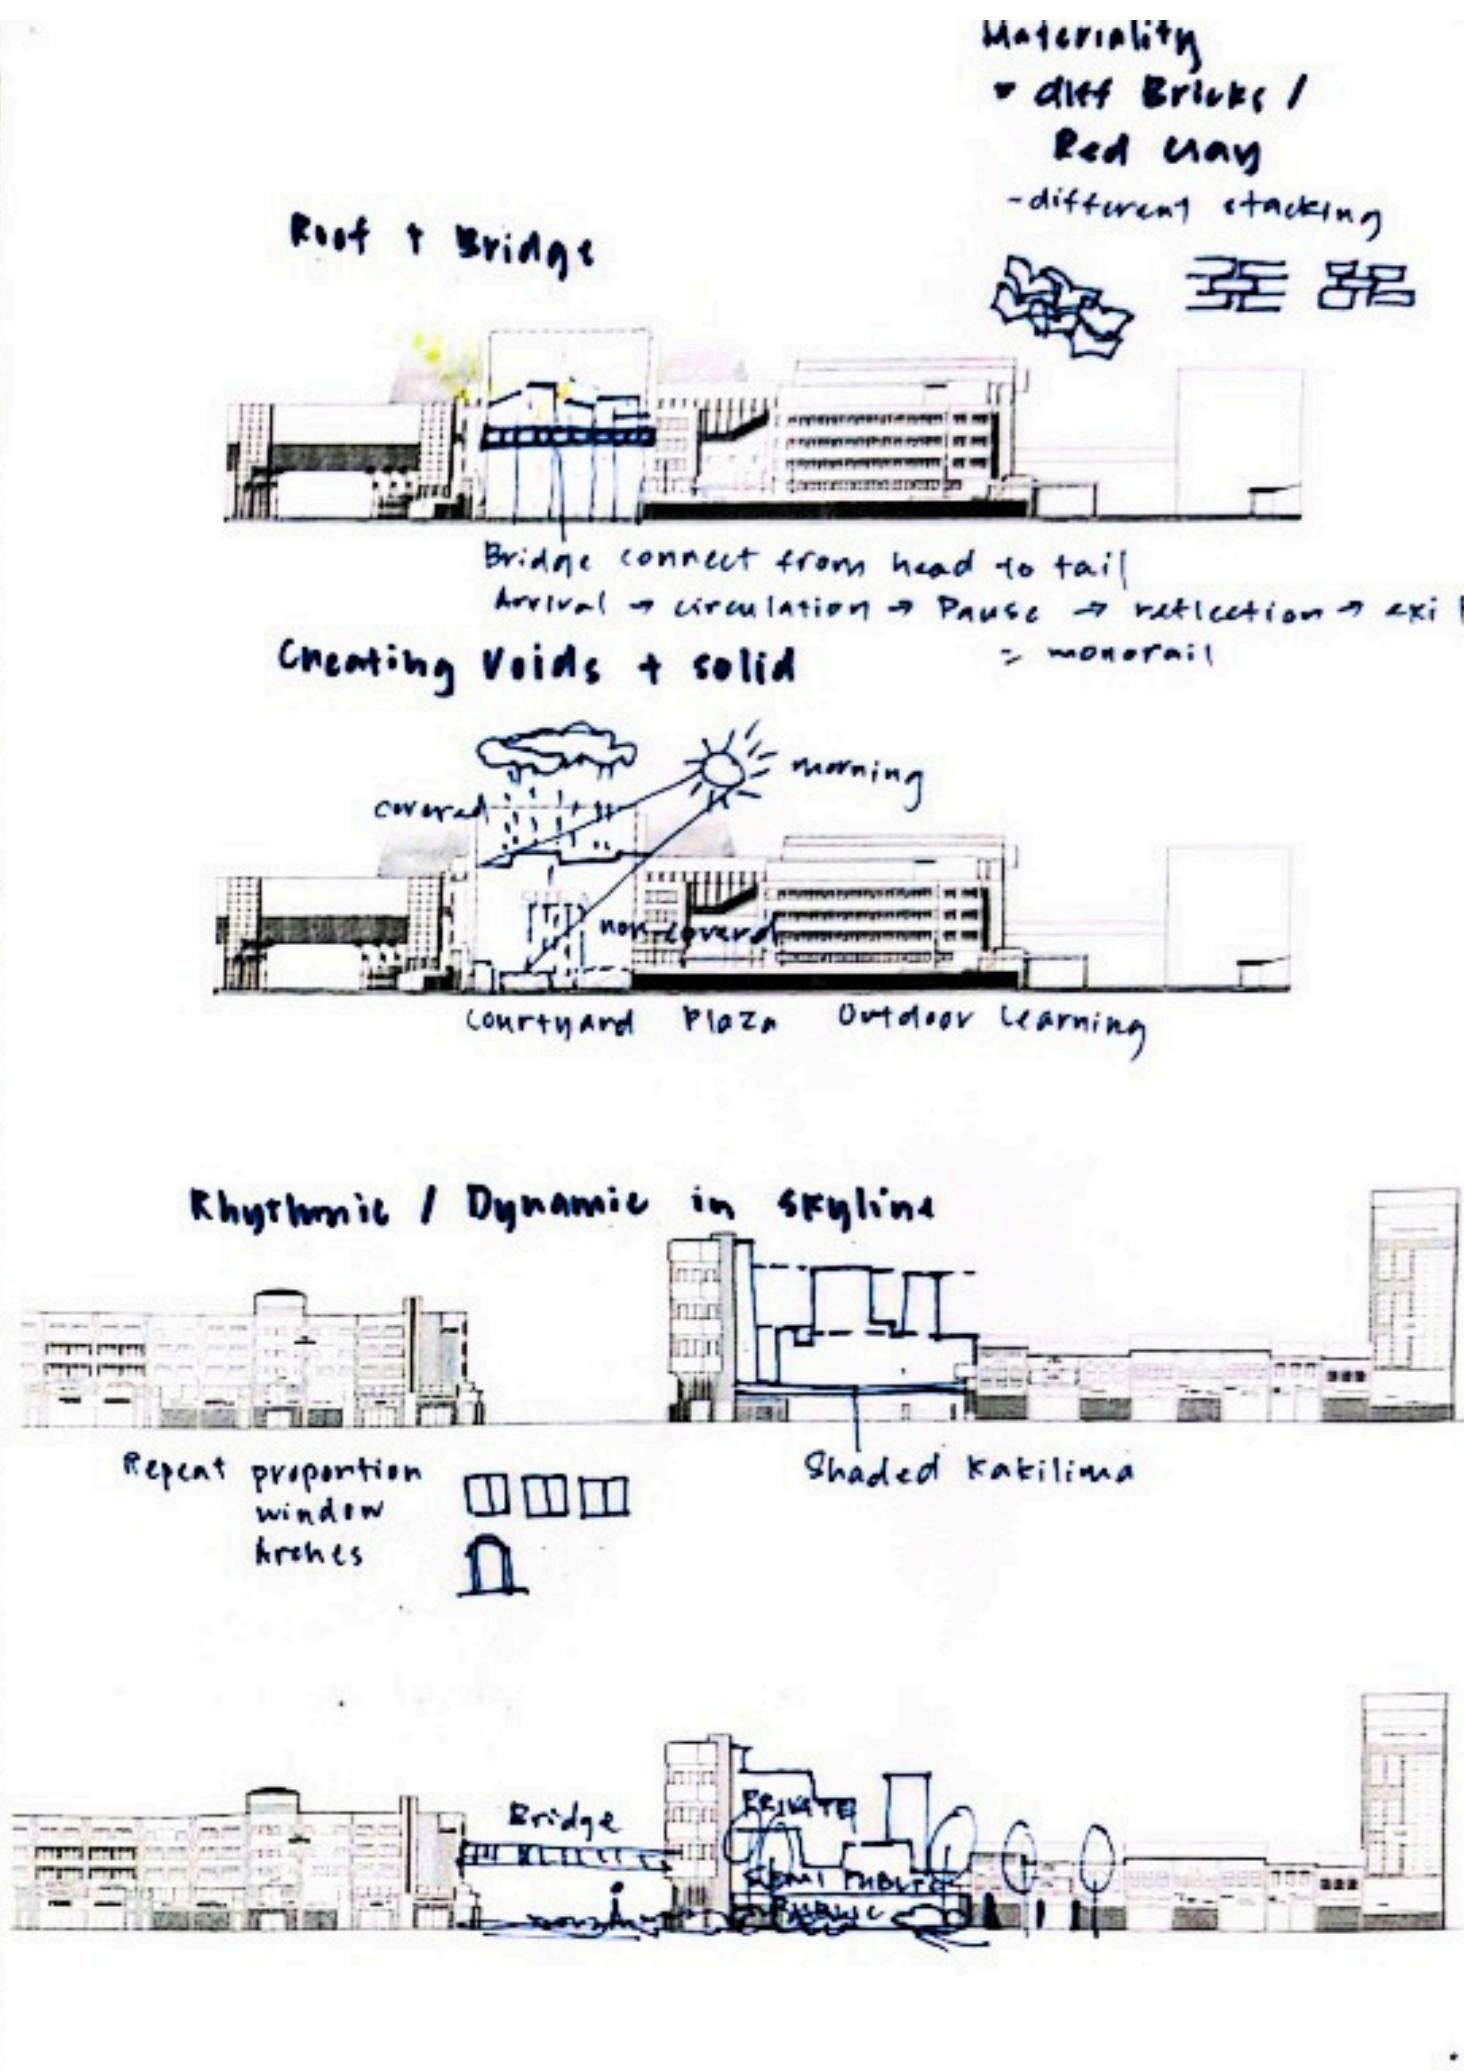 Materiality
• diff Bricks /
Red clay
- different stacking
Roof + Bridge
Bridge connect from head to tail
Arrival → circulation → Pause → reflection → exi
= monorail
Creating Voids + solid
morning
covered
non-covered
Courtyard Plaza Outdoor Learning
Rhythmic / Dynamic in skyline
Repeat proportion
window
Arches
Shaded Kakilima
Bridge
PRIVATE
SEMI PUBLIC
PUBLIC